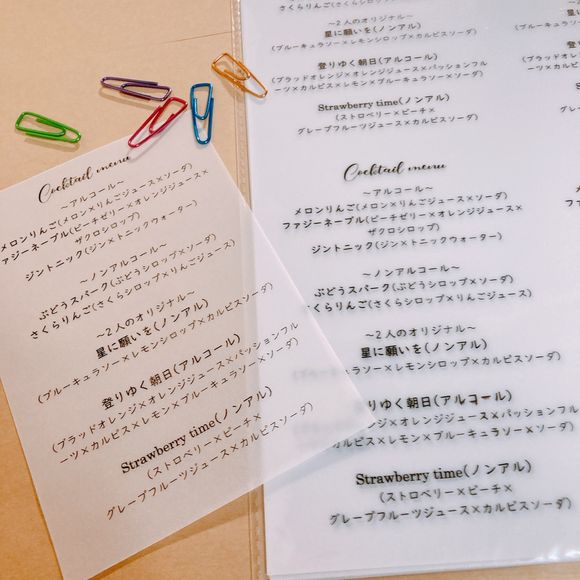 Cocktail menu
～アルコール～
メロンりんご(メロン×りんごジュース×ソーダ)
ファジーネーブル(ピーチゼリー×オレンジジュース×
ザクロシロップ)
ジントニック(ジン×トニックウォーター)
～ノンアルコール～
ぶどうスパーク(ぶどうシロップ×ソーダ)
さくらりんご(さくらシロップ×りんごジュース)
～2人のオリジナル～
星に願いを(ノンアル)
(ブルーキュラソー×レモンシロップ×カルピスソーダ)
登りゆく朝日(アルコール)
(ブラッドオレンジ×オレンジジュース×パッションフル
ーツ×カルピス×レモン×ブルーキュラソー×ソーダ)
Strawberry time(ノンアル)
(ストロベリー×ピーチ×
グレープフルーツジュース×カルピスソーダ)
さくらりんご(さくらシロップ×りんごジュース)
～2人のオリジナル～
星に願いを(ノンアル)
(ブルーキュラソー×レモンシロップ×カルピスソーダ)
登りゆく朝日(アルコール)
(ブラッドオレンジ×オレンジジュース×パッションフル
ーツ×カルピス×レモン×ブルーキュラソー×ソーダ)
Strawberry time(ノンアル)
(ストロベリー×ピーチ×
グレープフルーツジュース×カルピスソーダ)
Cocktail menu
～アルコール～
メロンりんご(メロン×りんごジュース×ソーダ)
ファジーネーブル(ピーチゼリー×オレンジジュース×
ザクロシロップ)
ジントニック(ジン×トニックウォーター)
～ノンアルコール～
ぶどうスパーク(ぶどうシロップ×ソーダ)
くらりんご(さくらシロップ×りんごジュース)
～2人のオリジナル～
星に願いを(ノンアル)
(ブルーキュラソー×レモンシロップ×カルピスソーダ)
登りゆく朝日(アルコール)
(ブラッドオレンジ×オレンジジュース×パッションフル
ーツ×カルピス×レモン×ブルーキュラソー×ソーダ)
Strawberry time(ノンアル)
(ストロベリー×ピーチ×
グレープフルーツジュース×カルピスソーダ)